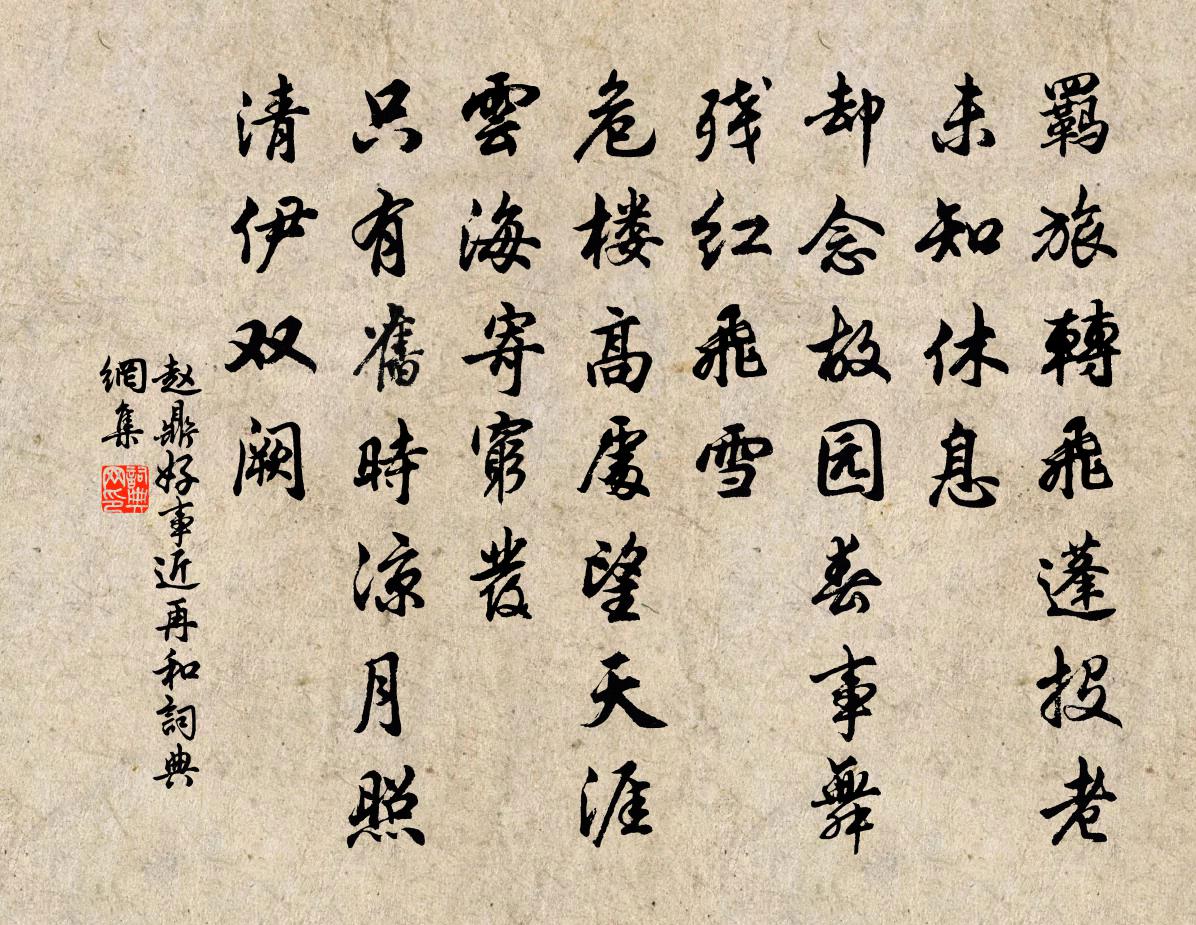 羁旅轉飛蓬投老
未知休息
却念故园春事舞
残红飛雪
危楼高處望天涯
雲海寄窮發
只有舊時凉月照
清伊双阙
赵鼎好事近再和詞典
網集
詞典
网印